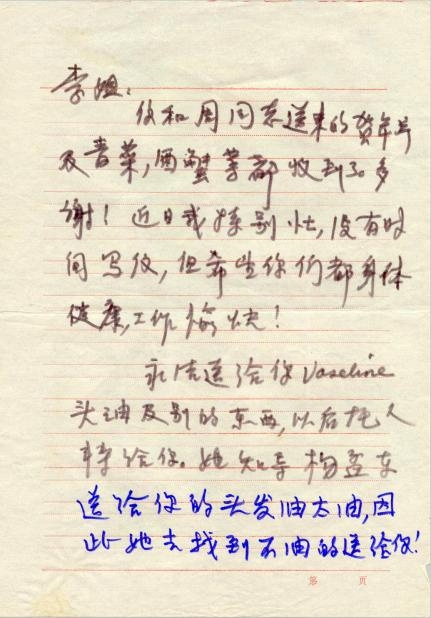 李姐：
信和周同志送来的贺年片
及青菜，蟹等都收到了。多
谢！近日我特别忙，没有时
间写信，但希望你们都身体
健康，工作愉快！
送给你Vaseline
头油及别的东西，以后托人
转给你。她知道
送给你的头发油太油，因
此她去找到不油的送给你！
第 页